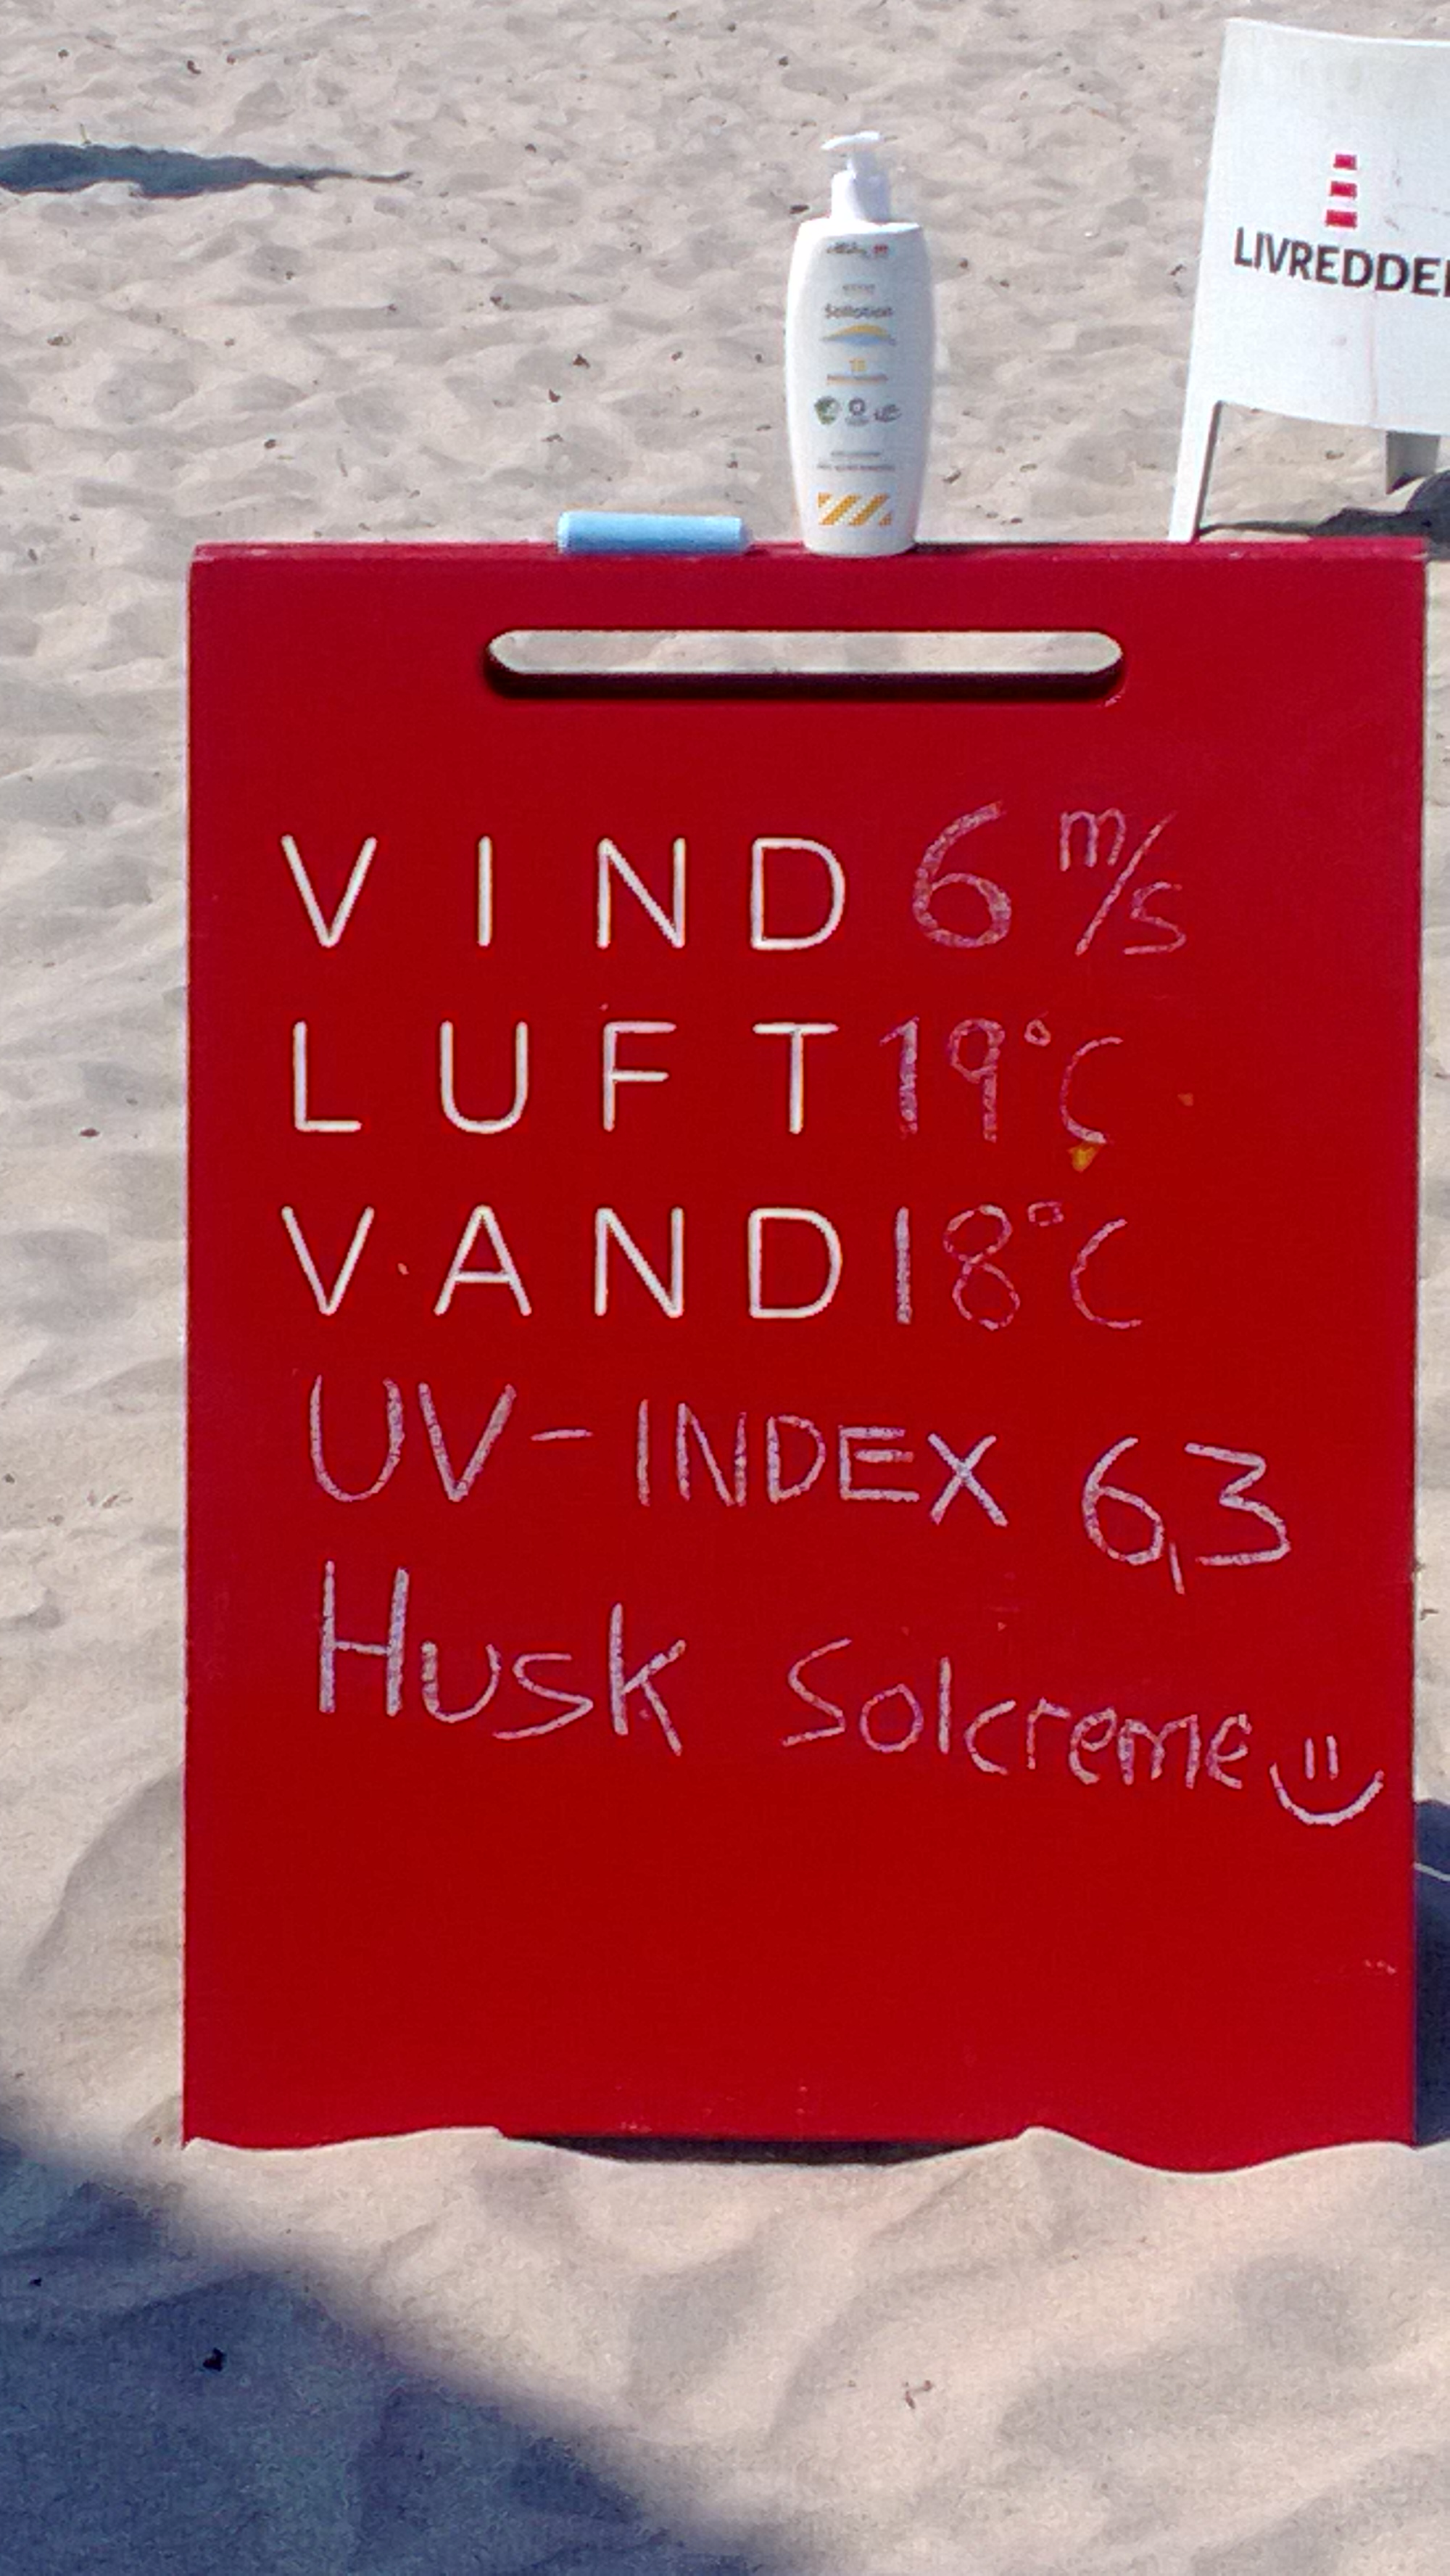 LIVREDDE
Sollotion
VIND 6 m/s
LUFT 19°C
VAND 18°C
UV-INDEX 6,3
Husk Solcreme